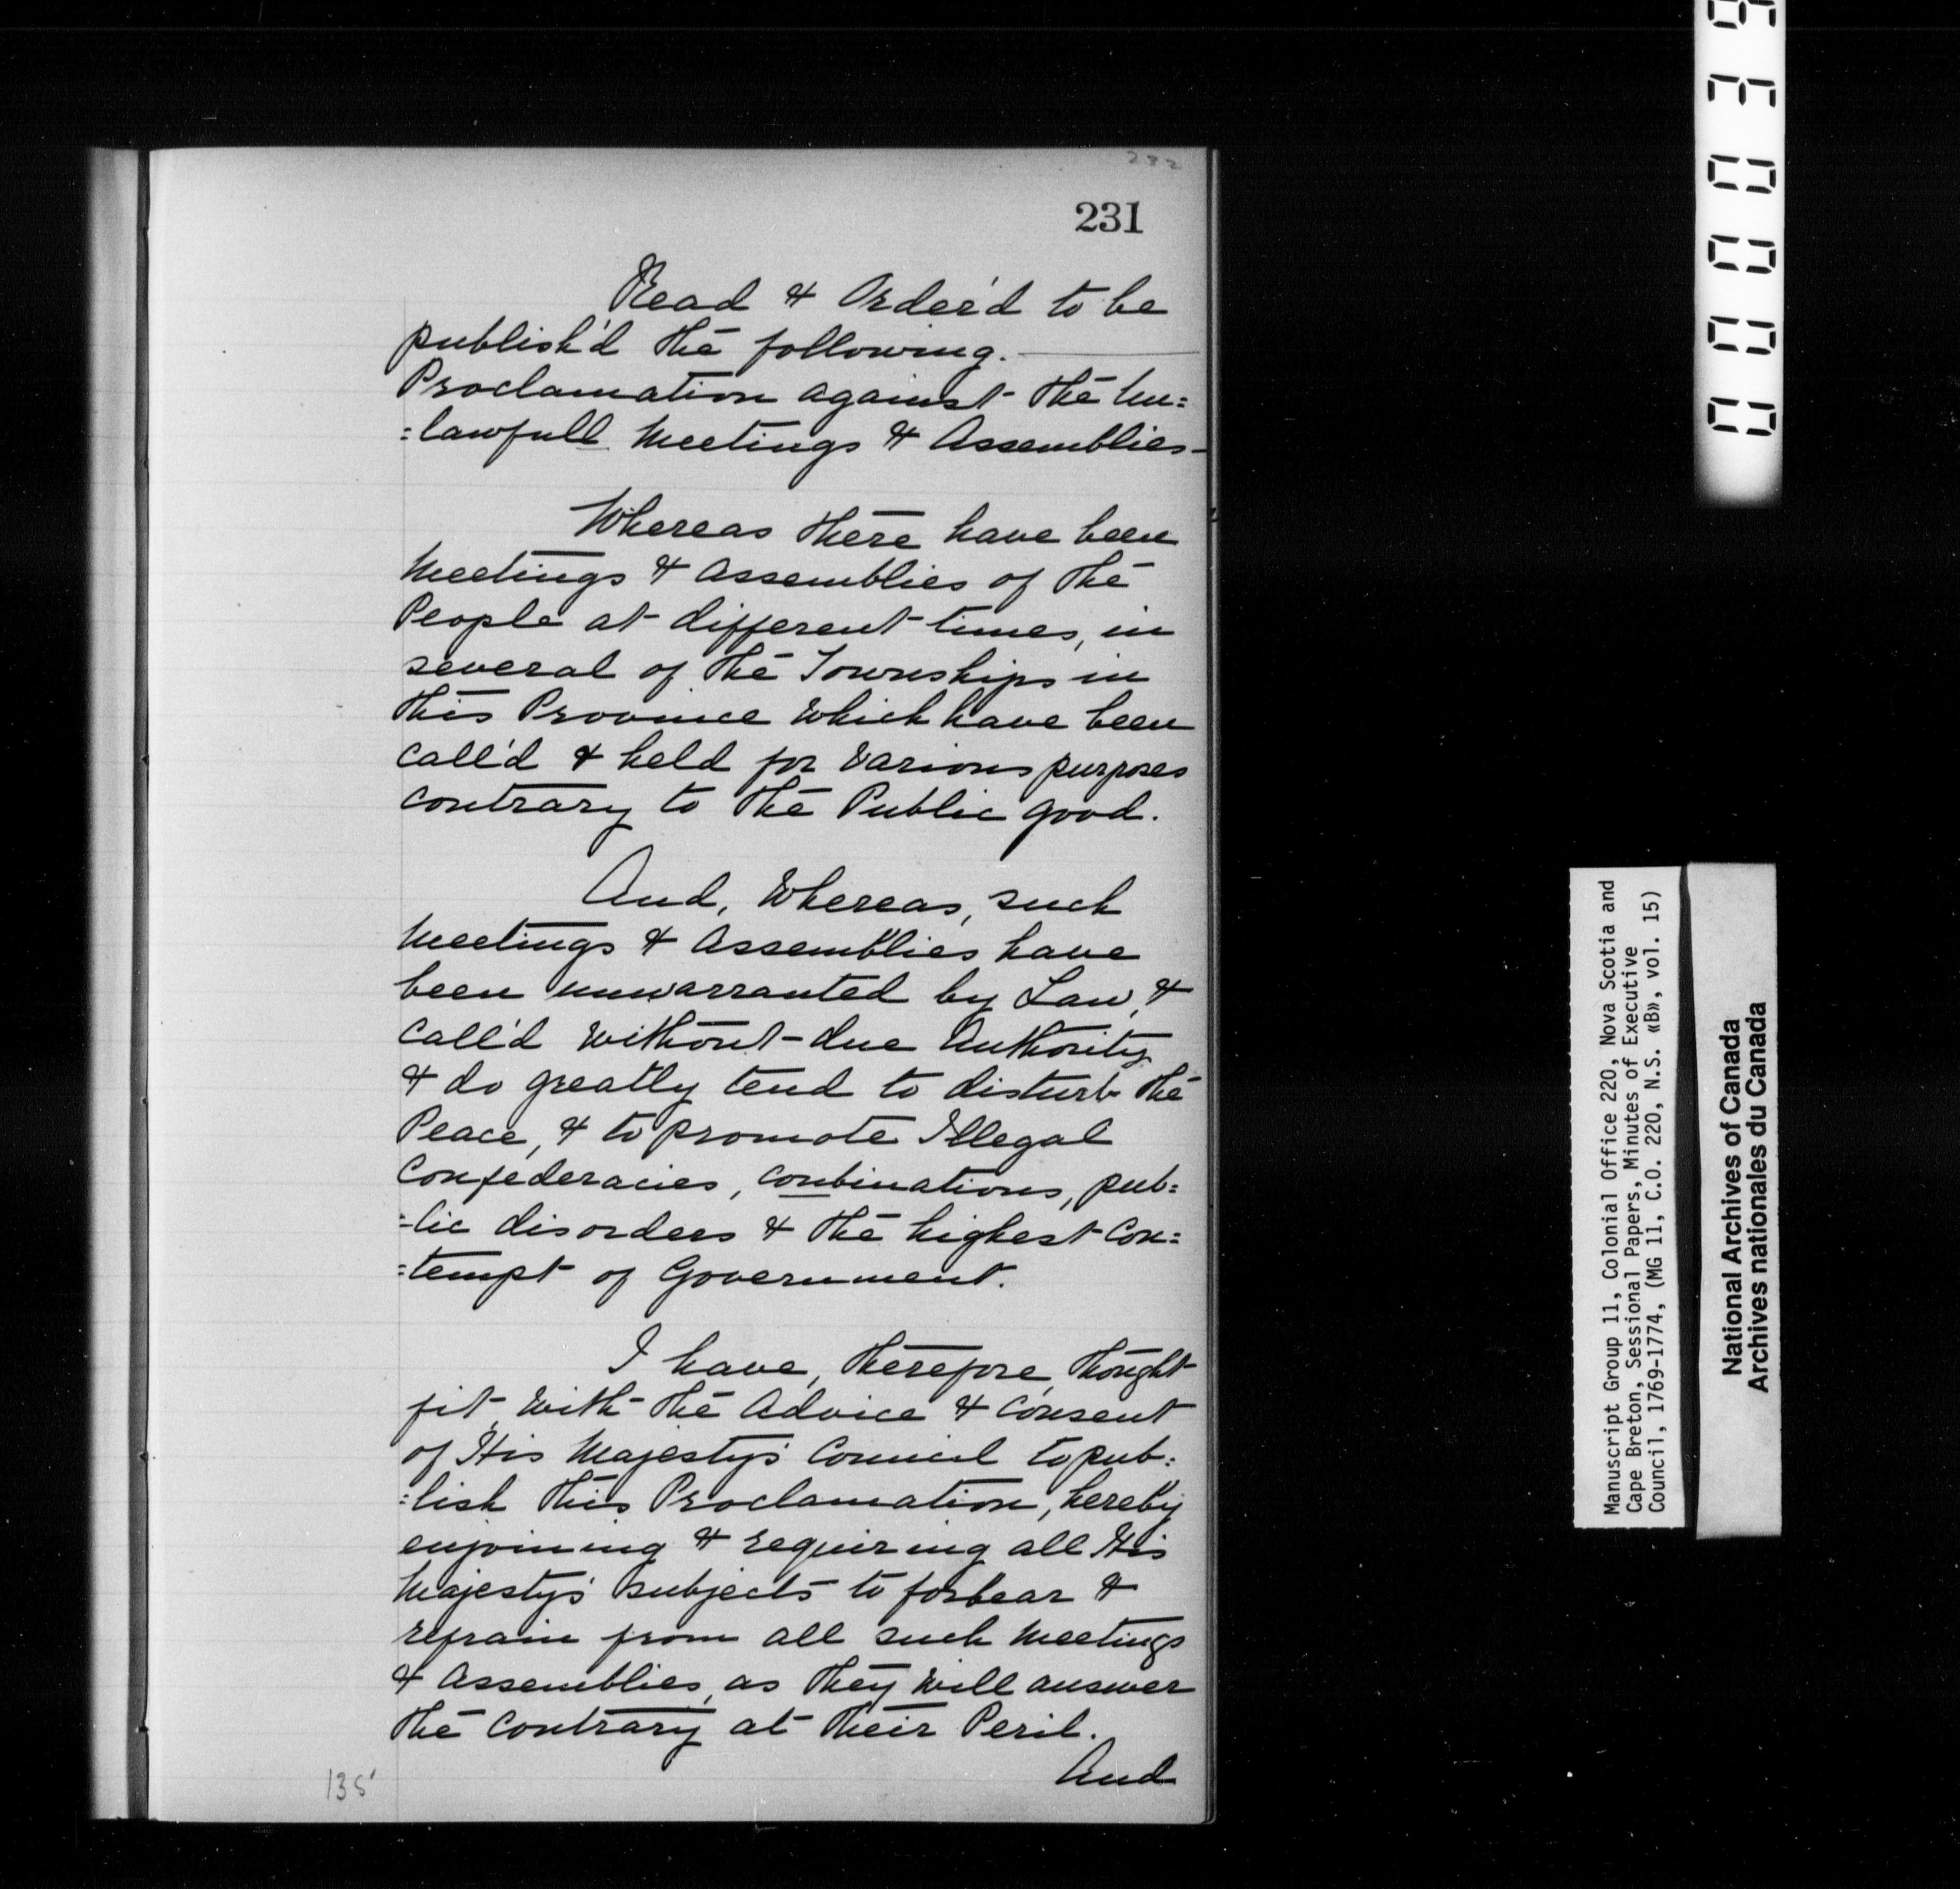 232
231
Read & Order'd to be
publish'd the following.
Proclamation against the Un=
=lawfull Meetings & Assemblies-
Whereas there have been
Meetings & Assemblies of the
People at different times, in
several of the Townships in
this Province which have been
call'd & held for various purposes
contrary to the Public good.
And, Whereas, such
Meetings & Assemblies have
been unwarranted by Law, &
call'd without due Authority
& do greatly tend to disturb the
Peace, & to promote Illegal
Confederacies, conbinations, pub=
=lic disorders & the highest Con=
=tempt of Government.
I have, therefore, thought
fit, with the Advice & Consent
of His Majesty's Council to pub=
=lish this Proclamation, hereby
enjoining & requiring all His
Majesty's subjects to forbear &
refrain from all such Meetings
& Assemblies, as they will answer
the Contrary at their Peril.
And
135
Manuscript Group 11, Colonial Office 220, Nova Scotia and
Cape Breton, Sessional Papers, Minutes of Executive
Council, 1769-1774, (MG 11, C.O. 220, N.S. «B», vol. 15)
National Archives of Canada
Archives nationales du Canada